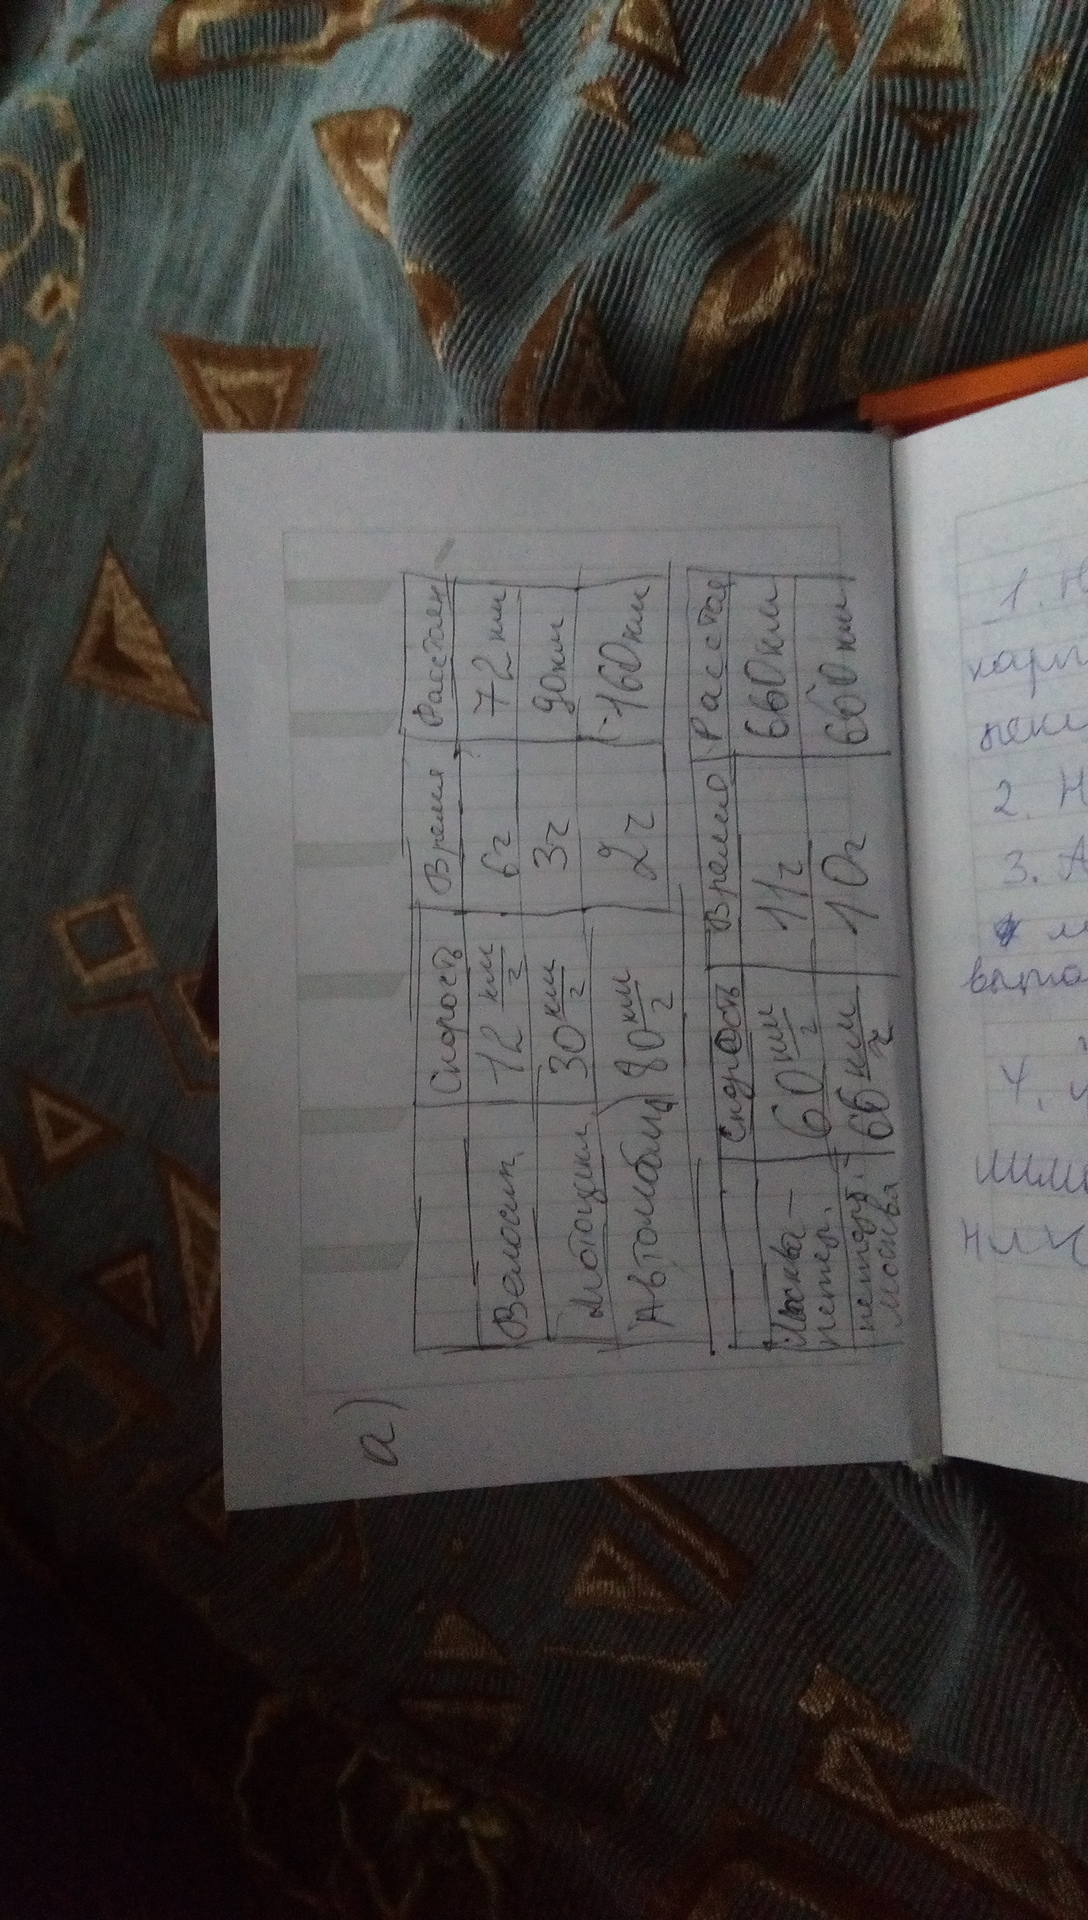 а)
Скорость Время Расстоян
Велосип. 12 км/ч 6ч 72 км
Мотоцикл. 30 км/ч 3ч 90км
Автомобиль 80 км/ч 2ч 160 км
Скорость Время Расстоя
Москва – 60 км/ч 11ч 660 км
петер.
петерб. – 66 км/ч 10ч 660 км
Москва
1. Н
карт
2. Н
3. А
4.